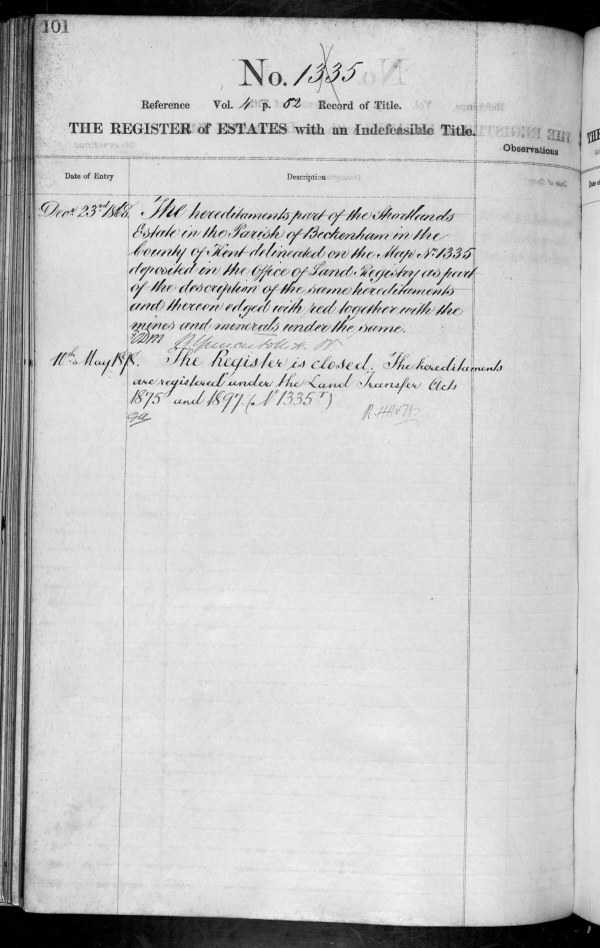 101
No. 1335
Reference Vol. 4 p. 52 Record of Title.
THE REGISTER of ESTATES with an Indefeasible Title.
Observations
Date of Entry
Description
Decr 23rd 1868. The hereditaments part of the Shortlands
Estate in the Parish of Beckenham in the
County of Kent delineated on the Map No 1335
deposited in the Office of Land Registry as part
of the description of the same hereditaments
and thereon edged with red together with the
mines and minerals under the same.
10th May The Register is closed. The hereditaments
are registered under the Land Transfer Acts
1875 and 1897 (No 1335
THE